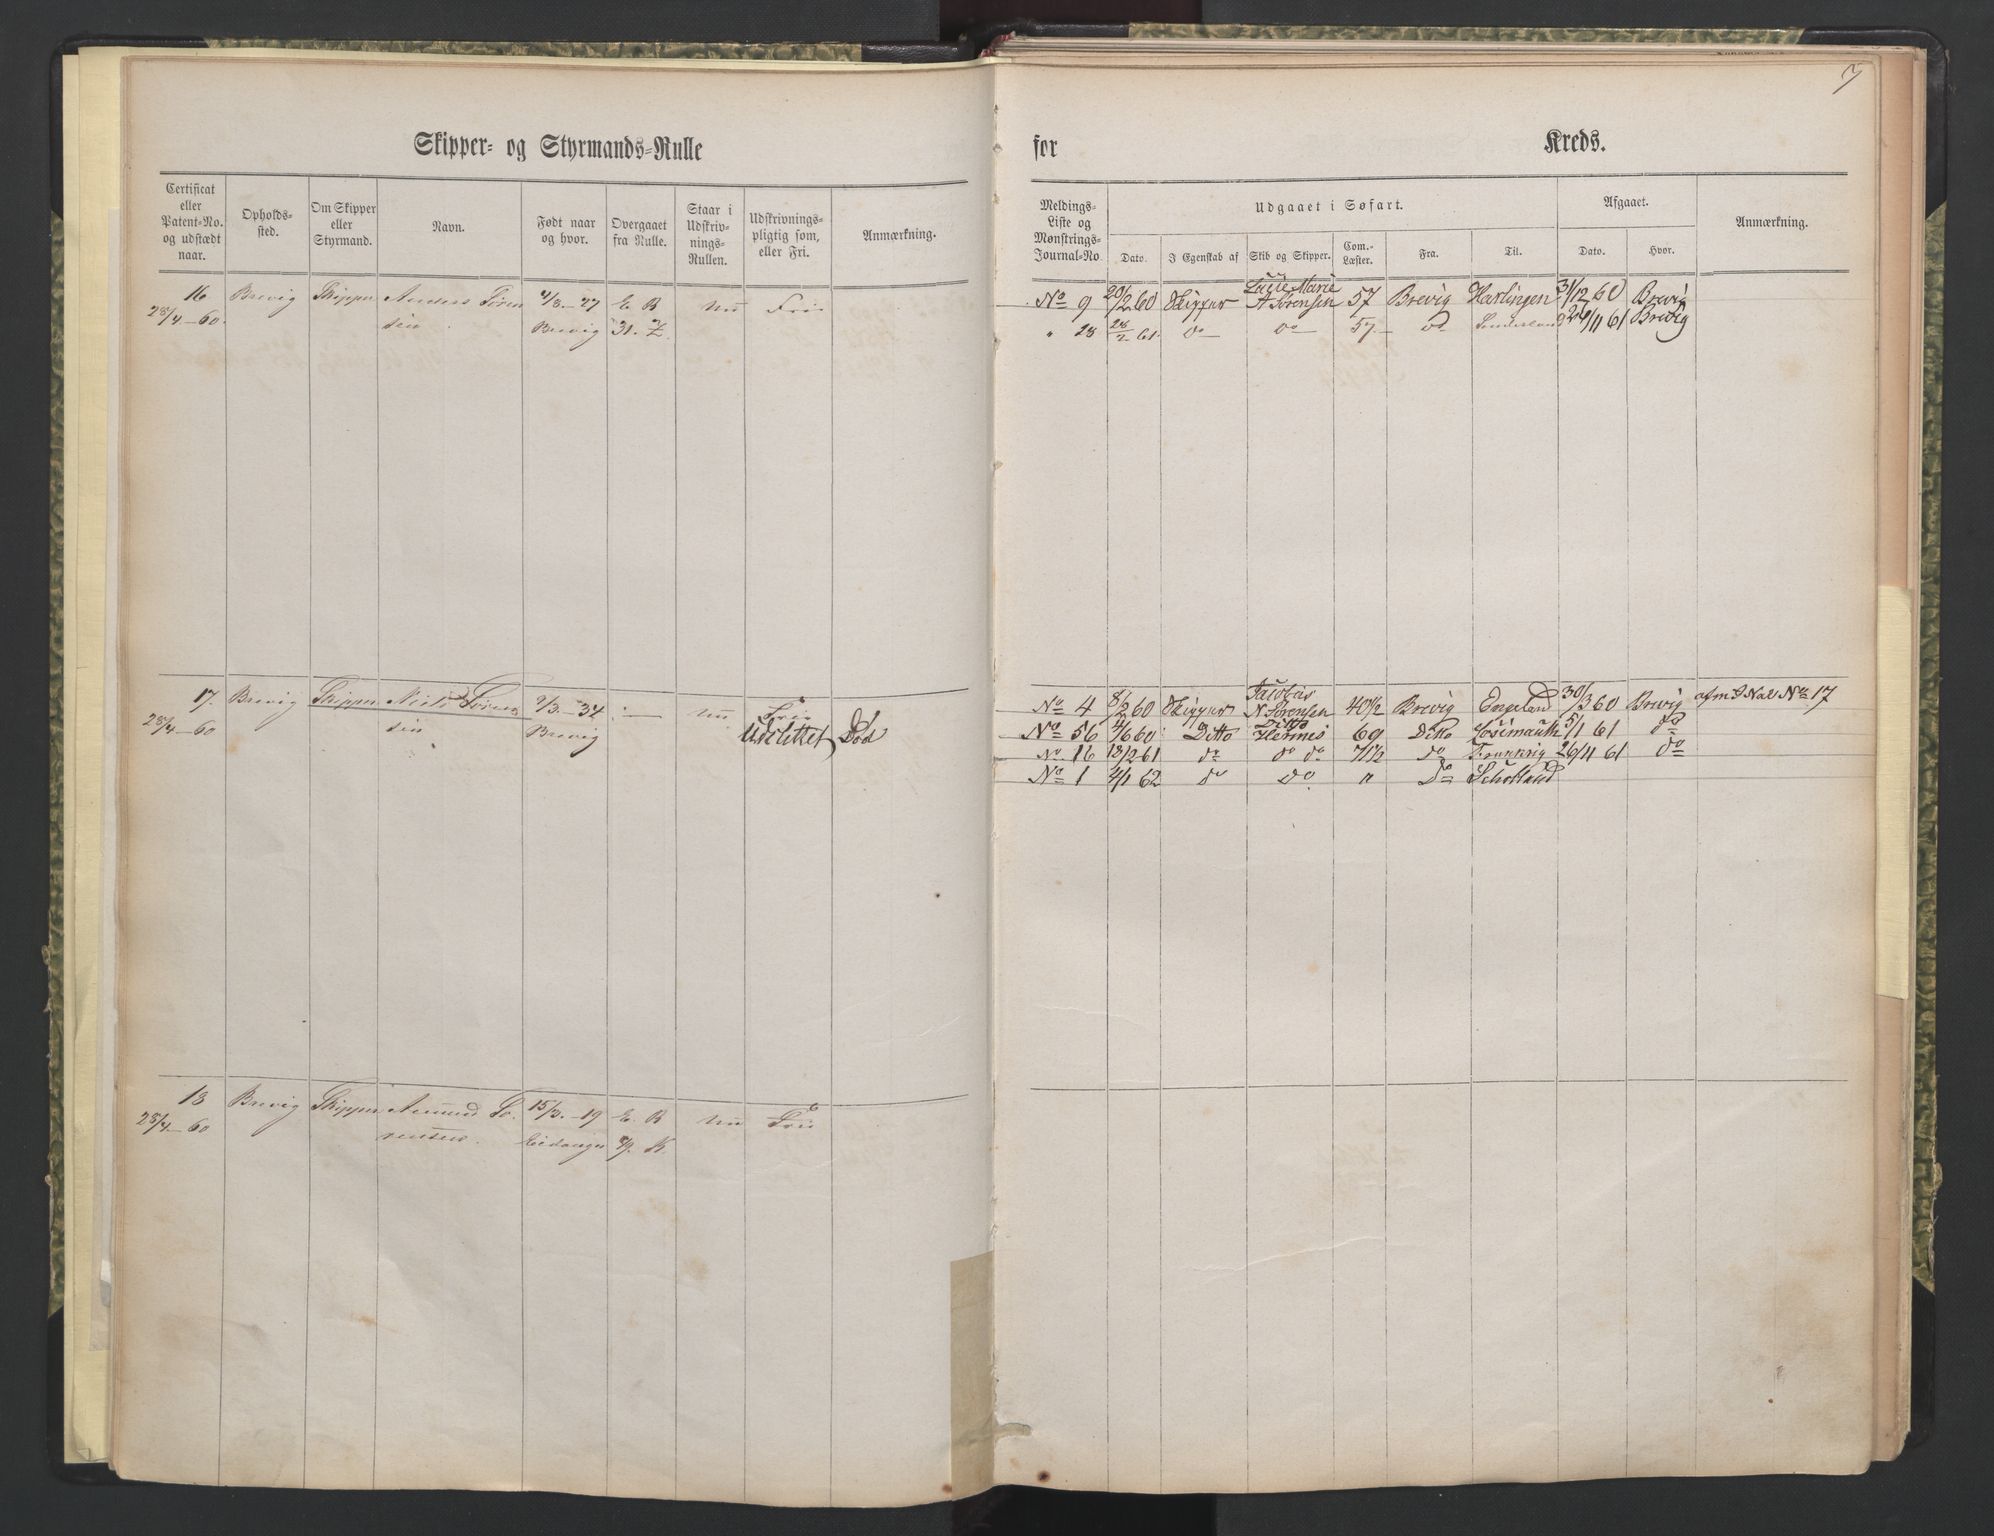 7
Skipper- og Styrmands-Rulle
for
Kreds.
Certificat eller Patent-No. og udstædt naar.
Opholds-sted.
Om Skipper eller Styrmand.
Navn.
Født naar og hvor.
Overgaaet fra Rulle.
Staar i Udskriv-nings-Rullen.
Udskrivnings-pligtig som, eller Fri.
Anmærkning.
Meldings-Liste og Mønstrings-Journal-No
Udgaaet i Søfart.
Dato.
I Egenskab af
Skib og Skipper.
Com.-Læster.
Fra.
Til.
Afgaaet.
Dato.
Hvor.
Anmærkning.
16 Brevig Skipper Anders Sören 4/3.-27 E. B nu Fri
28/4-60. sen. Brevig 31.
Lucie Marie
No 9 20/2 60 Skipper A Sörensen 57 Brevig Harlingen 31/12 60 Brevig
" 28 28/2 61. do do 57.- do Sunderland 24/11 61 Brevig
17. Brevig Skipper Niels Sörens 9/3.-34 :— nu. Fri
28/4-60 sen Brevig Udslettet, Död
Jacobus
No 4 8/2 60 Skipper N Sörensen 40 1/2 Brevig England 30/3 60 Brevig afm. No 17
Ditto
No 56 4/6 60 Ditto Hermes 69 Ditto 5/1 61 do
No 16 13/2 61 do do do 71 1/2 do Frankrig 26/11 61 do
No 1 4/1 62 do Do. " Do Schotland
18 Brevig Skipper Amund So. 15/3.-19 E. B nu Fri
28/4-60 rensen. Eidanger K.